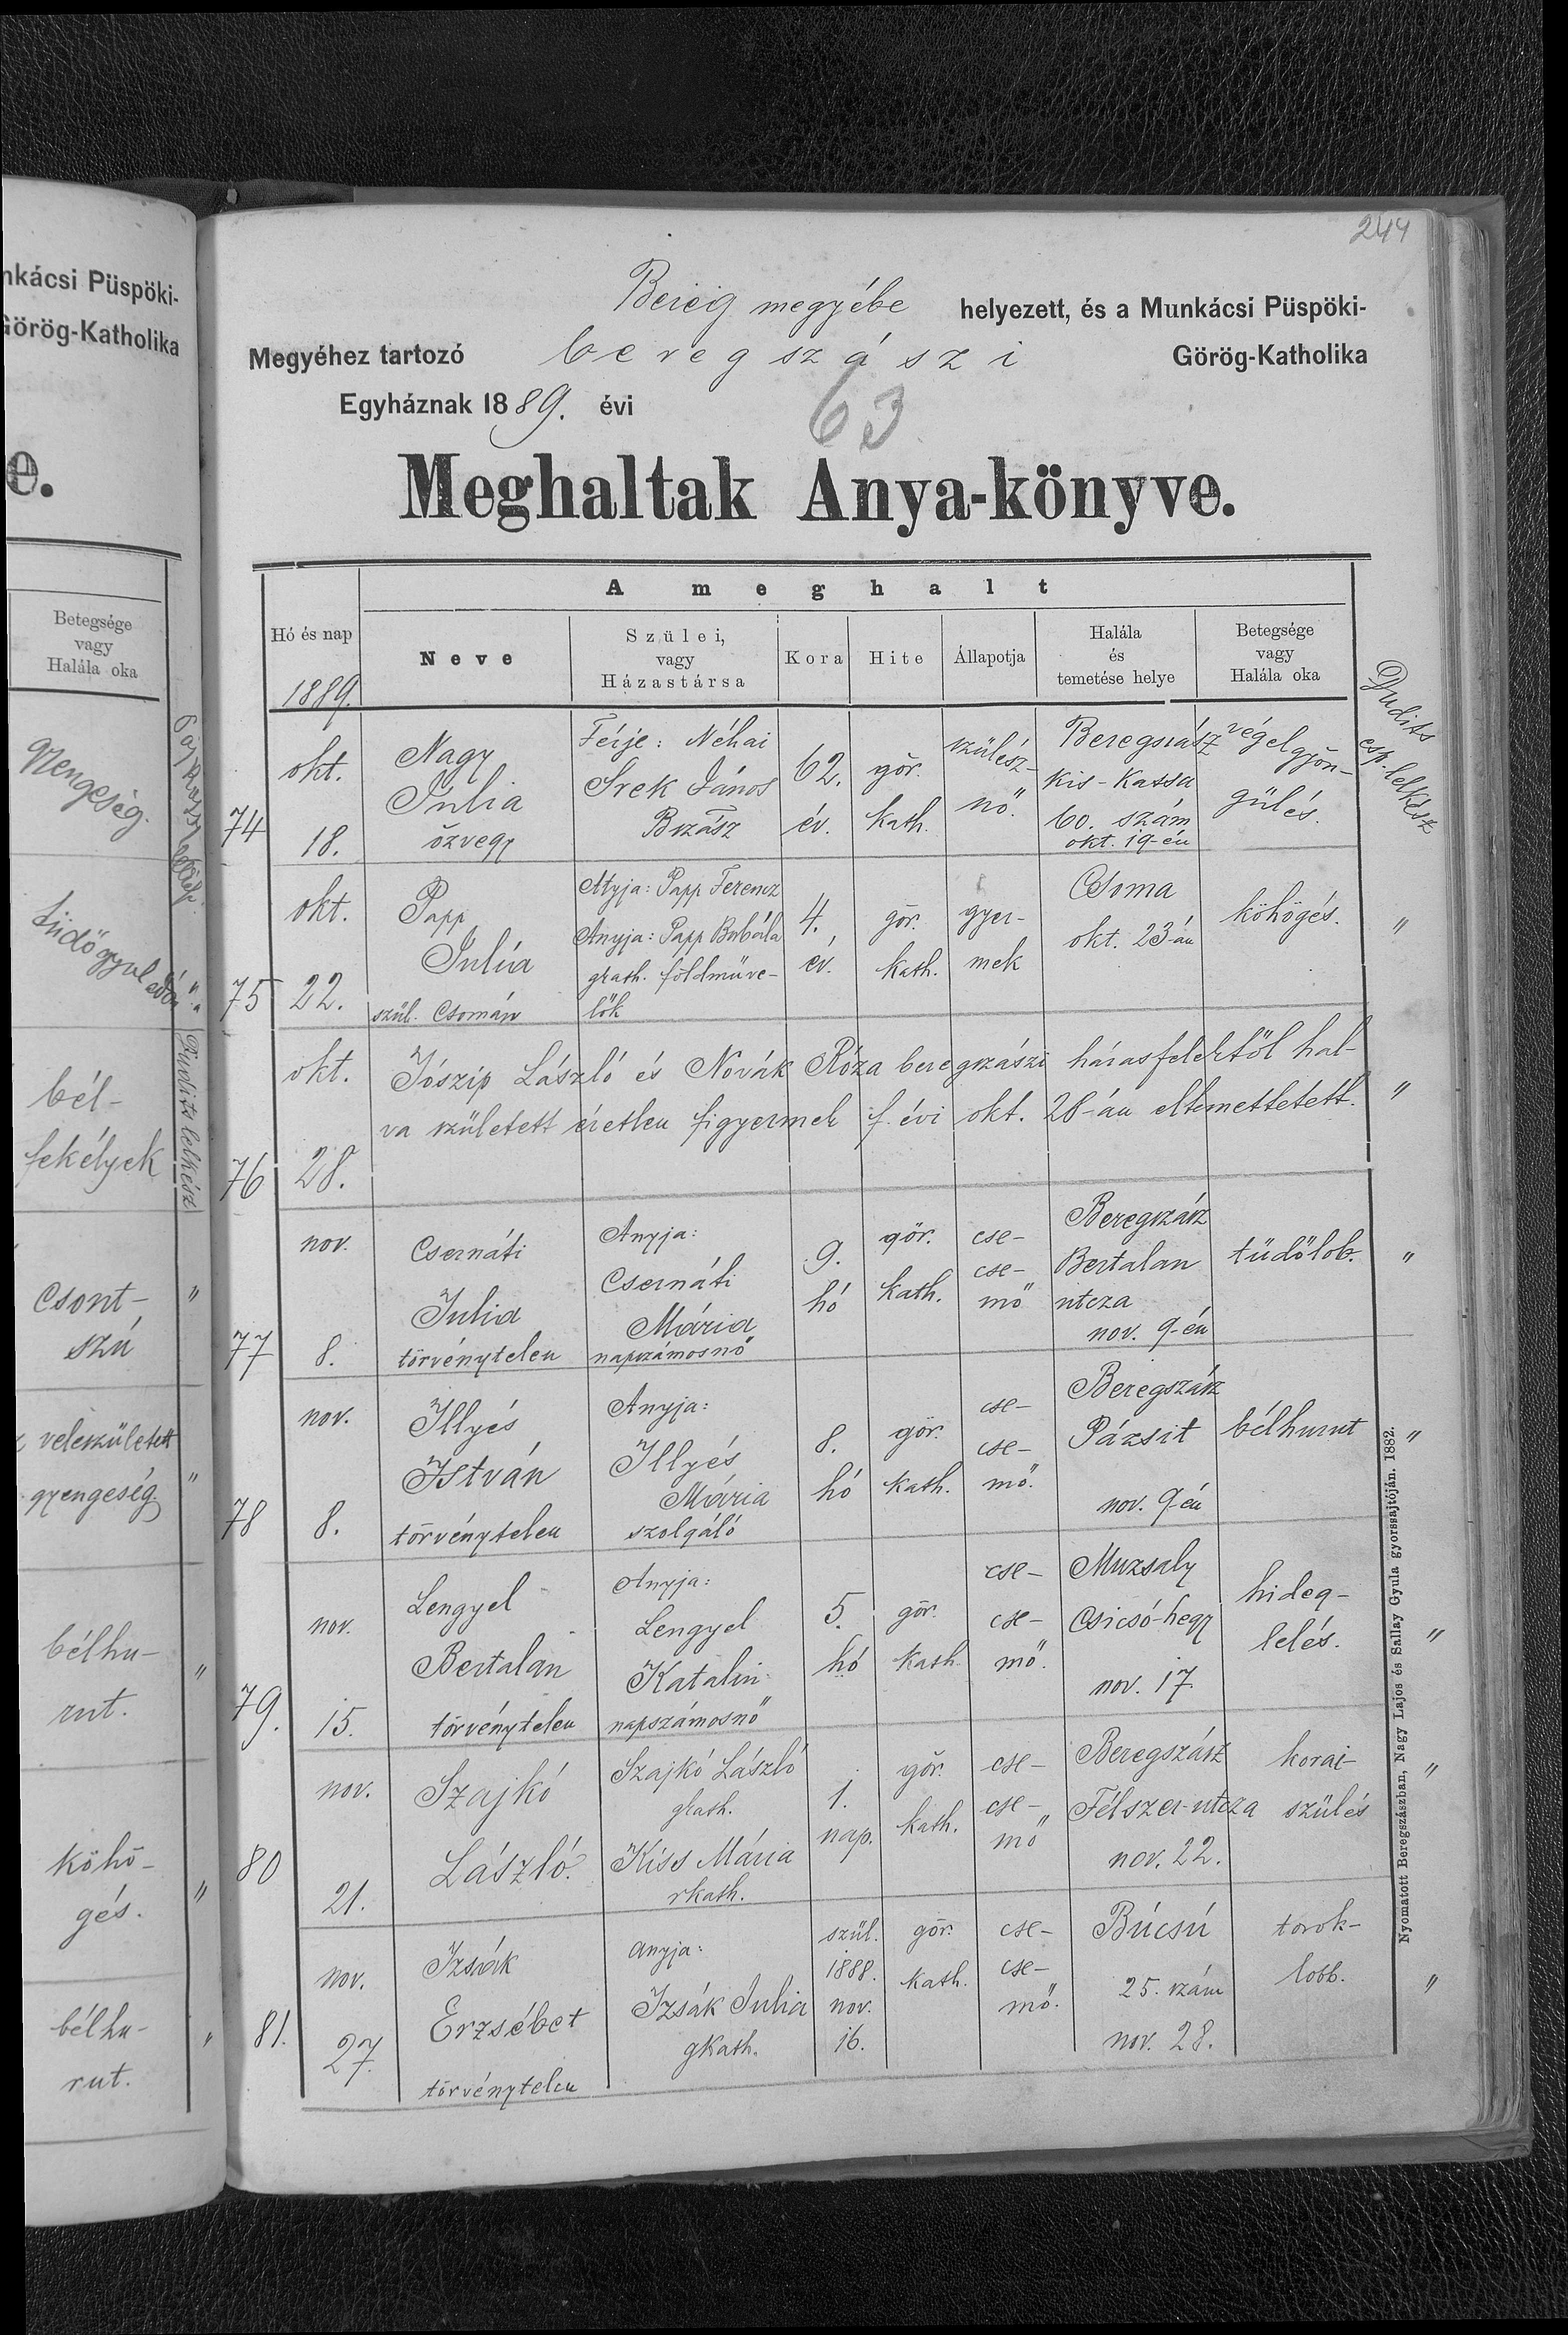 nkácsi Püspöki-
Görög-Katholika
e.
Betegsége
vagy
Halála oka
Mengeség.
tüdőgyul
bél-
fekélyek
Dudits lelkész
csont-
szú
veleszületett
gyengeség
bélhu-
rut.
köhö-
gés.
bélhu-
rut.
244
Bereg megyébe helyezett, és a Munkácsi Püspöki-
Megyéhez tartozó beregszászi Görög-Katholika
Egyháznak 1889. évi
63
Meghaltak Anya-könyve.
A meghalt
Hó és nap
1889.
Neve
Szülei,
vagy
Házastársa
Kora
Hite
Állapotja
Halála
és
temetése helye
Betegsége
vagy
Halála oka
74
okt.
18.
Nagy
Julia
özvegy
Férje: Néhai
Srek János
Bszász
62.
év.
gör.
kath.
szülész-
nő.
Beregszász
kis-Kassa
60. szám
okt. 19-én
végelgyön-
gülés.
Dudits
esp. lelkész
75
okt.
22.
Papp
Julia
szül. Csomán
Atyja: Papp Ferencz
Anyja: Papp Borbála
gkath. földműve-
lők
4.
év.
gör.
kath.
gyer-
mek
Csoma
okt. 23-án
köhögés.
"
76
okt.
28.
Jószip László és Novák Róza beregszászi házasfelektől hal-
va született éretlen figyermek f. évi okt. 28-án eltemettetett.
"
77
nov.
8.
Csernáti
Julia
törvénytelen
Anyja:
Csernáti
Mária
napszámosnő
9.
hó
gör.
kath.
cse-
cse-
mő
Beregszász
Bertalan
utcza
nov. 9-én
tüdőlob.
"
78
nov.
8.
Illyés
István
törvénytelen
Anyja:
Illyés
Mária
szolgáló
8.
hó
gör.
kath.
cse-
cse-
mő.
Beregszász
Pázsit
nov. 9-én
bélhurut
"
79.
nov.
15.
Lengyel
Bertalan
törvénytelen
Anyja:
Lengyel
Katalin
napszámosnő
5.
hó
gör.
kath.
cse-
cse-
mő.
Muzsaly
Csicsó-hegy
nov. 17
hideg-
lelés.
"
80
nov.
21.
Szajkó
László.
Szajkó László
gkath.
Kiss Mária
rkath.
1.
nap.
gör.
kath.
cse-
cse-
mő
Beregszász
Félszer-utcza
nov. 22.
korai
szülés
"
81.
nov.
27.
Izsák
Erzsébet
törvénytelen
anyja:
Izsák Julia
gkath.
szül.
1888.
nov.
16.
gör.
kath.
cse-
cse-
mő.
Búcsú
25. szám
nov. 28.
torok-
lobb.
"
Nyomatott Beregszászban, Nagy Lajos és Sallay Gyula gyorssajtóján. 1882.